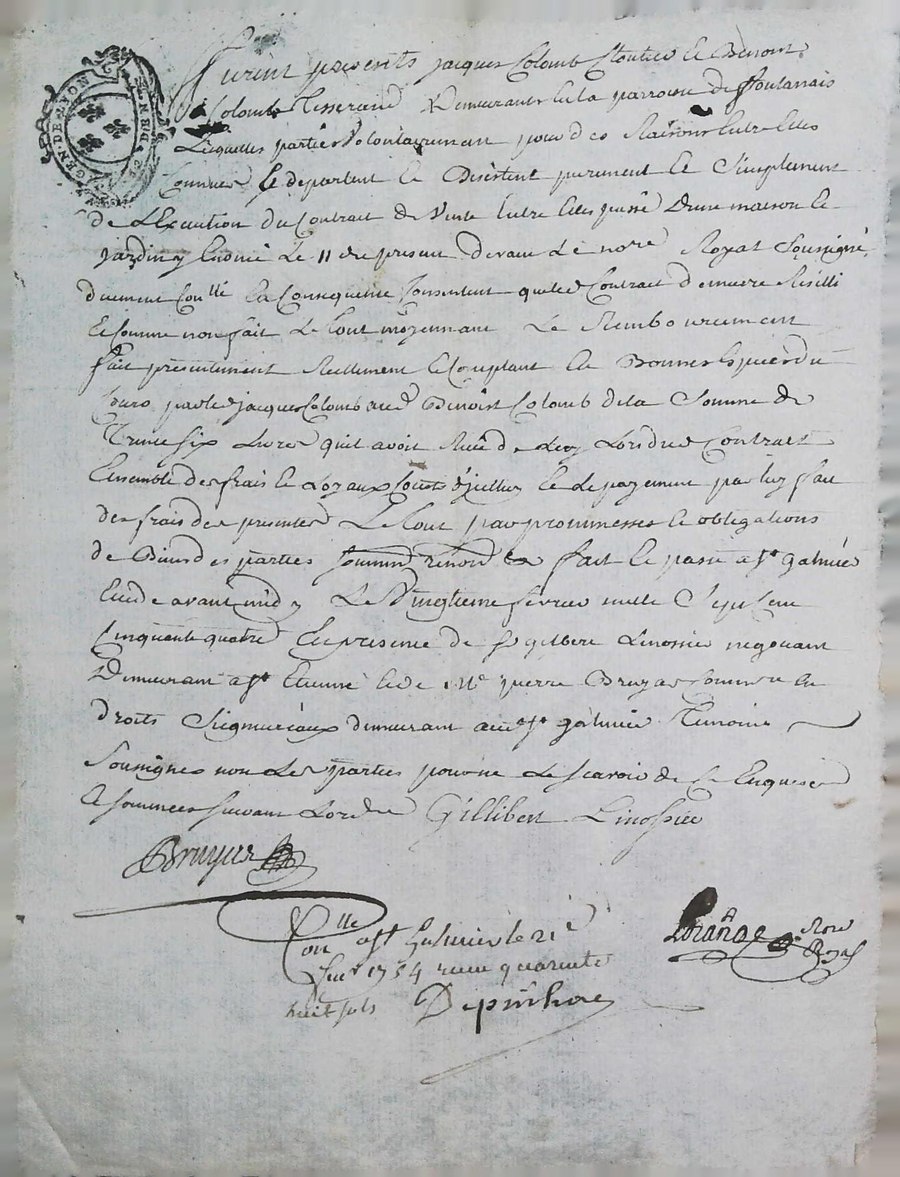 GEN DE LYON
Furent presents jacques Colomb Cloutier et Benoist
Colomb Tisserand Demeurants en la parroisse de Fontanais
Lesquelles parties Volontairement pour des Raisons Entre Elles
Connues se departent et Desistent purement et Simplement
de L'Execution du Contrat de Vente Entre Elles passé D'une maison et
jardin y Enoncé Le 11 du present devant Le nore Royal Soussigné
duement Conllé En Consequence Consentent que led Contrat demeure Resilli
Et Comme non fait Le tout moyennant Le Rembourcement
fait presentement Reellement Et Comptant En Bonnes Especes du
Cours par led jacques Colomb aud Benoist Colomb de la Somme de
Trente six Livres qu'il avoit de Luy Lors dud Contrat
Ensemble des frais et Loyaux Couts d'jcelluy et le payement par luy fait
des frais des presentes Le tout par prommesses et obligations
de Biens des parties renon & fait et passé a st galmier
Etude avant midy Le Vingtieme fevrier mille Sept Cent
Cinquante quatre En presence de sr gilbert Linossier negotiant
Demeurant a st Etienne et de Me pierre Bruyas Commis en
droits Seigneuriaux demeurant aud st galmier Temoins
Soussignes non Les parties pour ne Le scavoir de ce Enquises
Et sommees suivant L'ordre Gillibert Linossier
Bruyas
Conlle a st Galmier le 21e
feur 1754 receu quarente
huit sols Depinhac
Nore
Royal